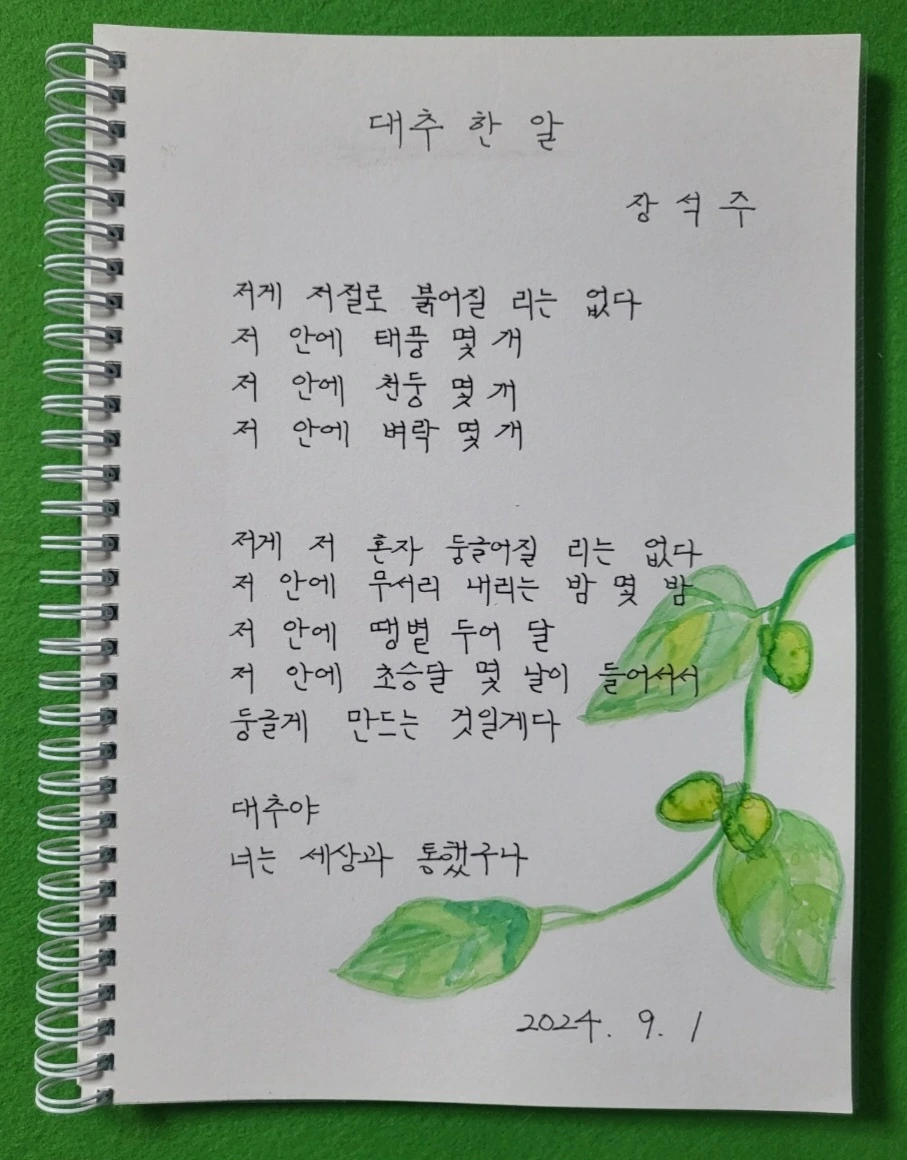 대추 한 알
장석주
저게 저절로 붉어질 리는 없다
저 안에 태풍 몇 개
저 안에 천둥 몇 개
저 안에 벼락 몇 개
저게 저 혼자 둥글어질 리는 없다
저 안에 무서리 내리는 밤 몇 밤
저 안에 땡볕 두어 달
저 안에 초승달 몇 날이 들어서서
둥글게 만드는 것일게다
대추야
너는 세상과 통했구나
2024. 9. 1